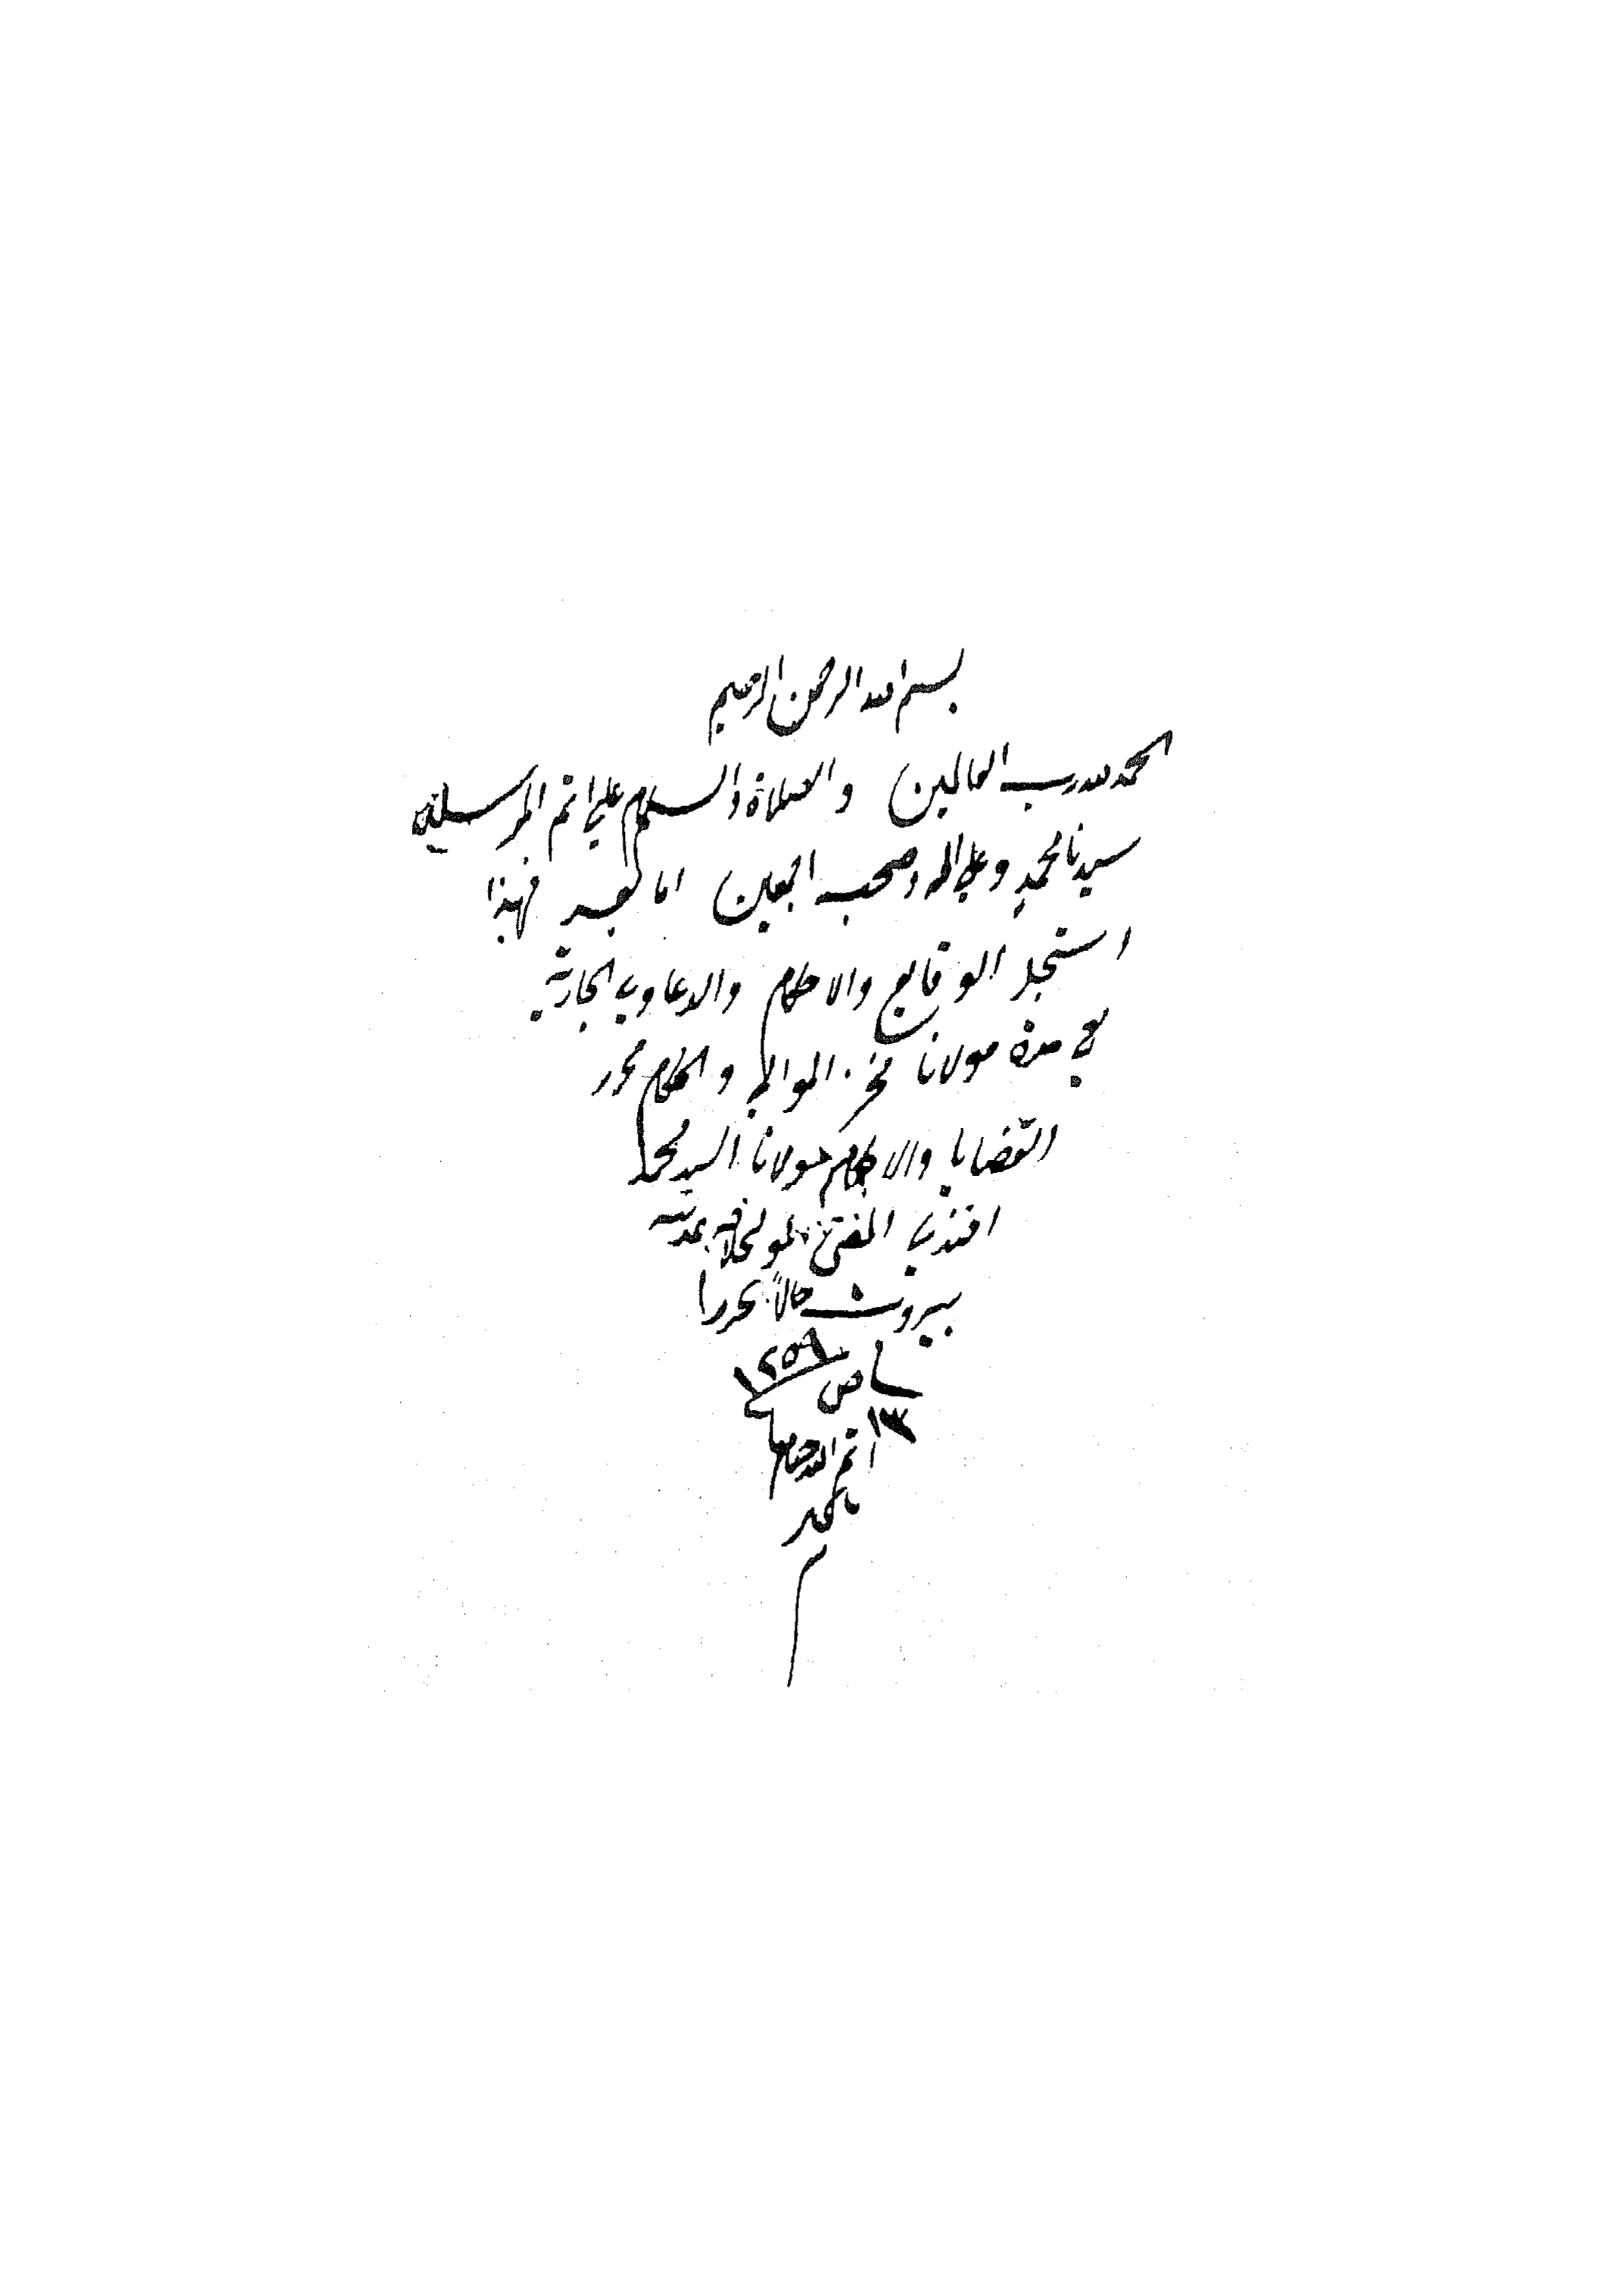 بسم الله الرحمن الرحيم
الحمد لله رب العالمين والصلاة والسلام على اتم المرسلين
سيدنا محمدٍ وعلى اله وصحبه اجمعين اما بعد فهذا
سجل الوقايع والاحكام والدعاوي الجارية
في مدة مولانا فخر الموالي والحكام محرر
القضايا والاحكام مولانا السيد محمد
افندي المفتي المولى خلافه بمدينة
بيروت حالاً تحررا
في ص ١٢٥٩
١٣
اتم الله ختامها
بالخير
م